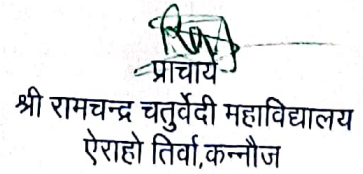 प्राचार्य
श्री रामचन्द्र चतुर्वेदी महाविद्यालय
ऐराहो तिर्वा,कन्नौज